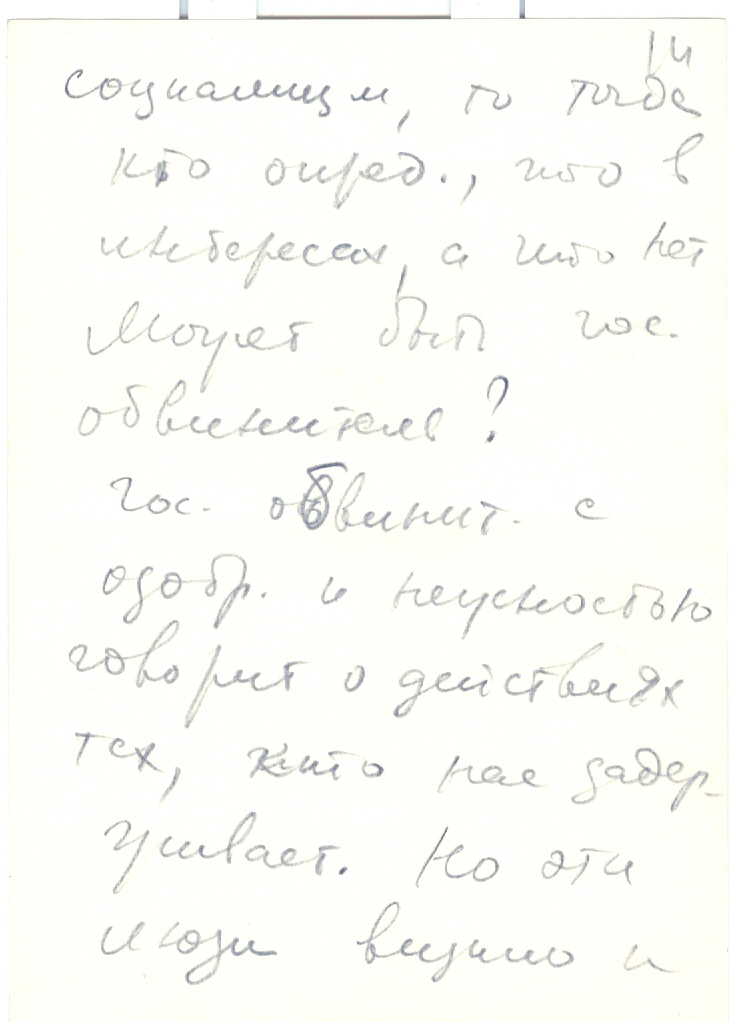 14
социализм, то тогда
кто опред., что в
интересах, а что нет
Может быть гос.
обвинитель?
Гос. обвинит. с
одобр. и нежностью
говорит о действиях
тех, кто нас задер-
живает. Но эти
люди видимо и